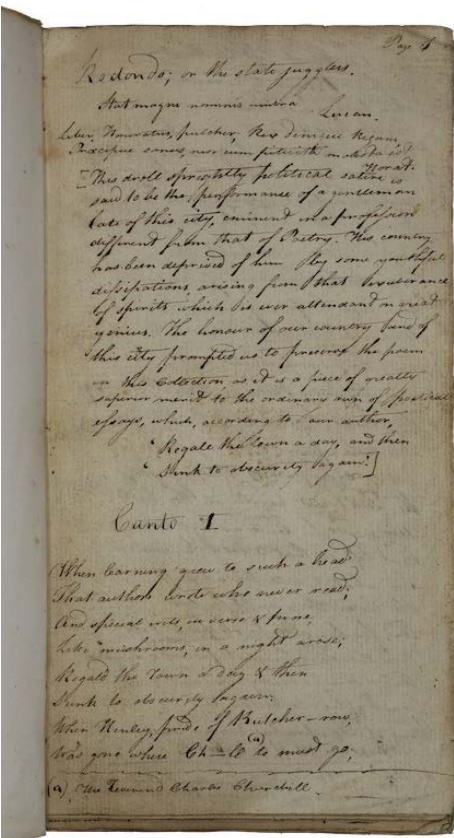 Page 1
Rodondo; or the state jugglers.
Stat magni nominis umbra
Lucan.
Liber, Honoratus, pulcher, Rex denique Regum,
Præcipue sanus, nisi cum pituita molesta est
Horat.
[This droll sprightly political satire is
said to be the performance of a gentleman
late of this city, eminent in a profession
different from that of Poetry. His country
has been deprived of him by some youthful
dissipations, arising from that exuberance
of spirits which is ever attendant on great
genius. The honour of our country and of
this city prompted us to preserve the poem
in this Collection as it is a piece of greatly
superior merit to the ordinary run of political
essays, which, according to our author,
" Regale the town a day, and then
" Sunk to obscurity again.]
Canto I
When learning grew to such a head
That authors wrote who never read;
And special wits, in verse & prose,
Like mushrooms, in a night arose;
Regal'd the Town a day & then
Sunk to obscurity again;
When Henley, pride of Butcher-row,
Was gone where Ch—ll (a) must go;
(a) The Reverend Charles Churchill.